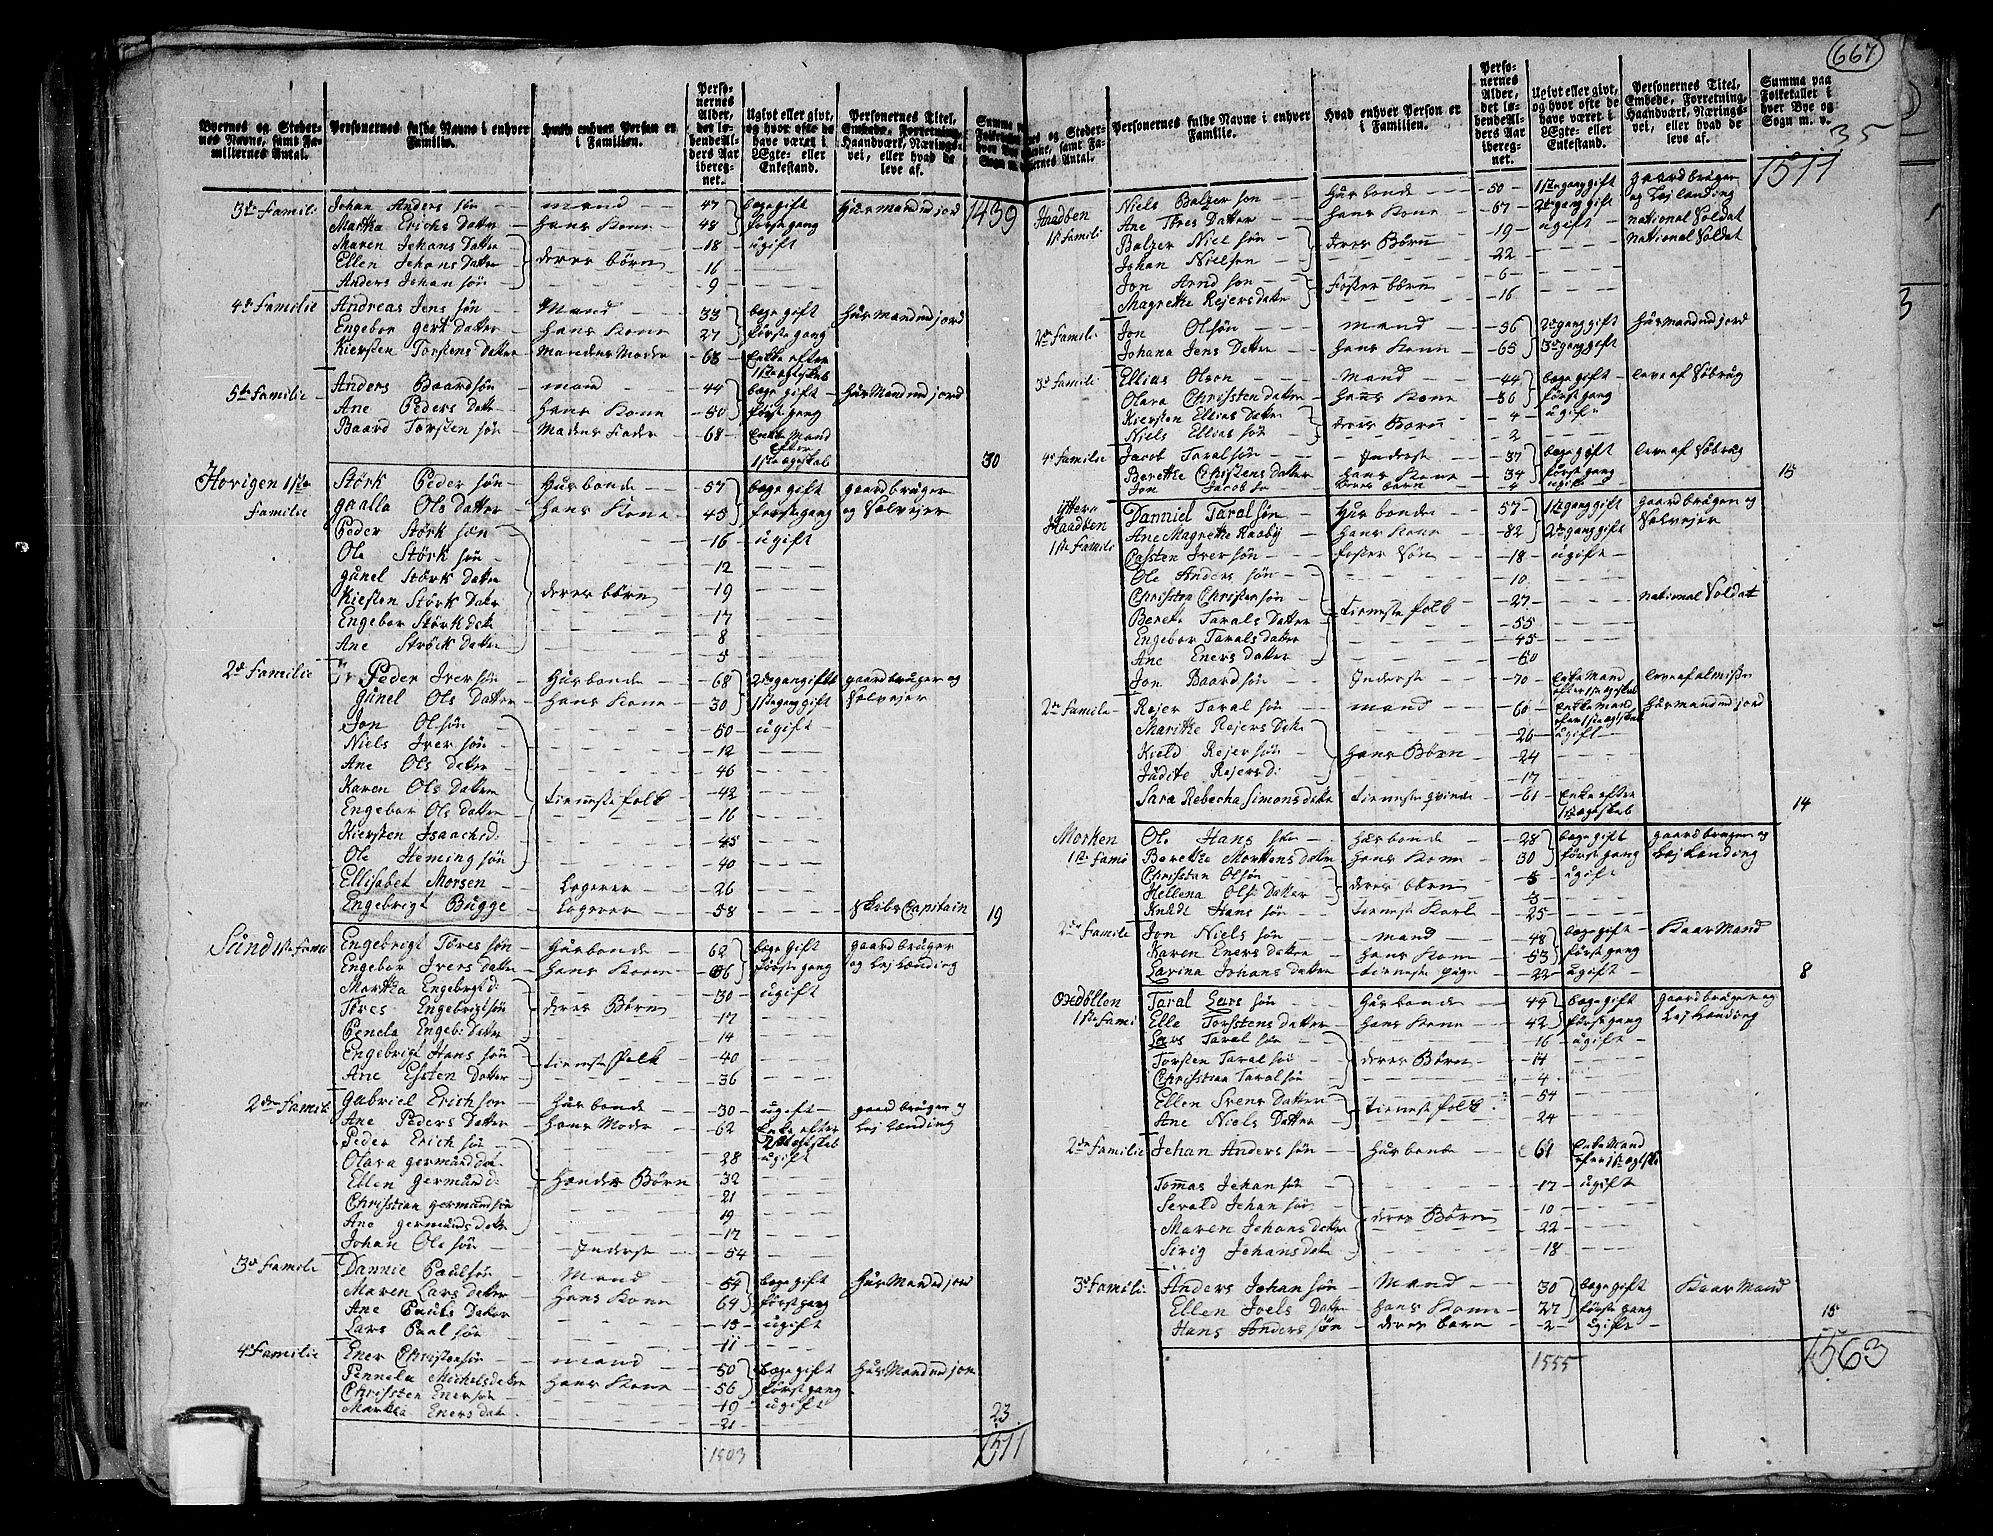 667
35
Byernes og Stedernes Navne, samt Familiernes Antal.
Personernes fulde Navne i enhver Familie.
Hvad enhver Person er i Familien.
Personernes Alder, det løbende Alders Aar iberegnet.
Ugivt eller givt, og hvor ofte de have været i Ægte- eller Enkestand.
Personernes Titel, Embede, Forretning, Haandværk, Næringsvei, eller hvad de leve af.
1439
3de Famili Johan Anders søn mand 47 bege gift Husmand md jord
Martha Erichs Datter hans Kone 48 første gang
Maren Johans Datter 18 ugift
Ellen Johans Datter deres børn 16
Anders Johan søn 9
4de Familie Andreas Jens søn Mand 33 bege gift Husmand md jord
Engebor Gert Datter hans Kone 27 første gang
Kiersten Torstens Datter Mandens Moder 68 Enke efter 1ste ægteskab
5te Familie Anders Baardsøn mand 44 bege gift Hus Mand md jord
Ane Peders Datter hans Kone 50 første gang
Baard Torsten søn Madens Fader 68 Enke Mand efter 1ste ægteskab
30
Hovigen 1ste Familie Størk Peder søn Husbonde 57 bege gift gaardbruger
gaalla Ols Datter hans Kone 45 første gang og Selvejer
Peder Størk søn 16 ugift
Ole Størk søn 12
Gunel Størk Datter 19
Kiersten Størk Datter deres børn 17
Engebor Størk datter 8
Ane Størk Datter 5
2de Familie Peder Iver søn Husbonde 68 2den gang gift gaardbruger og
Gunel Ols Datter hans Kone 30 1ste gang gift Selvejer
Jon Olsøn 50 ugift
Niels Iver søn 12
Ane Ols datter 46
Karen Ols Datter tienneste folk 42
Engebor Ols datter 16
Kiersten Isaachs d: 45
Ole Heming søn 40
Ellisabet Morsen Logerer 26
Engebrigt Bugge Logerer 58 Skibs Capitain
19
Sund 1ste Famili Engebrigt Tøres søn Husbonde 62 bege gift gaardbruger
Engebor Ivers datter hans Kone 66 første gang og Lej Lænding
Martha Engebrigts d: 30 ugift
Tøres Engebrigtsøn deres Børn 17
Penela Engeb: Datter 14
Engebrigt Hans søn tienneste folk 40
Ane Esten Datter 36
2den Famili Gabriel Erich søn Husbonde 30 ugift gaardbruger og
Ane Peders Datter hans Moder 62 Enke efter 2det ægteskab Lej Lænding
Peder Erich søn 28 ugift
Olava Germund datter 32
Ellen Germund d: Hendes Børn 21
Christian Germund søn 19
Ane Germunds datter 17
Johan Ole søn Inderst 54
3de Famili Dannie Paulsøn Mand 54 bege gift Hus Mand md jord
Maren Lars datter hans Kone 64 første gang
Ane Pauls Datter 15 ugift
Lars Paul søn 11
4de Familie Ener Christensøn mand 50 bege gift Hus Mand md jord
Pennela Michels datter hans Kone 56 første gang
Christen Ener søn 19 ugift
Martha Eners datter 21
23
1503
1511
Byernes og Stedernes Navne, samt Familiernes Antal.
Personernes fulde Navne i enhver Familie.
Hvad enhver Person er i Familien.
Personernes Alder, det løbende Alders Aar iberegnet.
Ugivt eller givt, og hvor ofte de have været i Ægte- eller Enkestand.
Personernes Titel, Embede, Forretning, Haandværk, Næringsvei, eller hvad de leve af.
Summa paa Folketallet i hver Bye og Sogn m. v.
1511
Haadøen 1ste Famili Niels Balzer søn Husbonde 50 1ste gang gift gaardbruger og Lejlending
Ane Tøres Datter hans Kone 67 2den gang gift
Balzer Niel søn deres Børn 19 ugift national Soldat
Johan Nielsen 22 national Soldat
Jon Arnd søn Foster børn 6
Magrette Rejers datter 16
2den Famili Jon Olsøn mand 36 2den gang gift Husmand md jord
Johana Jens Datter hans Kone 65 3de gang gift
3de Famili Ellias Olsen Mand 44 bege gift leve af Søbrug
Olava Christen datter hans Kone 36 første gang
Kiersten Ellias Datter deres Børn 4 ugift
Niels Ellias søn 2
4de Familie Jacob Taral søn Inderst 37 bege gift leve af Søbrug
Berette Christens Datter hans Kone 34 første gang
Jon Jacob søn deres børn 4 ugift
15
Yttere Haadøen 1ste Famili Danniel Taral søn Husbonde 57 1ste gang gift gaardbruger og
Ane Magrette Raaby hans Kone 82 2den gang gift Selvejer
Casten Iver søn Foster Søn 18 ugift
Ole Anders søn 10
Christen Christen søn 27 national Soldat
Berete Tarals Datter tienneste folk 55
Engebor Tarals datter 45
Ane Eners datter 50
Jon Baard søn Inderst 70 Enke Mand efter 1ste ægteskab leve af almisse
2den Familie Rejer Taral søn mand 60 Enke Mand efter 1ste ægteskab Husmand md jord
Maritte Rejers Datter 26 ugift
Kield Rejer søn hans Børn 24
Judite Rejers d: 17
Sara Rebecha Simons datter tienneste qvinde 61 Enke efter 1ste ægteskab
14
Morken 1ste Fami Ole Hans søn Husbonde 28 bege gift gaardbruger og
Berette Mortens datter hans Kone 30 første gang Lej Lending
Christian Olsøn 5 ugift
Hellena Ols Datter deres børn 3
Knudt Hans søn tienneste Karl 25
2den Famili Jon Niels søn mand 48 bege gift Kaar Mand
Karen Eners datter hans Kone 53 første gang
Lavina Johans datter tienneste pige 22 ugift
8
Oxdøllen 1ste Fami Taral Lars søn Husbonde 44 bege gift gaardbruger og
Elle Torstens datter hans Kone 42 første gang Lej Lænding
Lars Taral søn 16 ugift
Torsten Taral søn deres Børn 14
Christian Taral søn 4
Ellen Svens Datter tienneste folk 54
Ane Niels Datter 24
2den Familie Johan Anders søn Husbonde 61 Enke Mand efter 1ste ægteskab
Tomas Johan søn 17 ugift
Sevald Johan søn 10
Maren Johans datter deres Børn 22
Sirig Johans datter 18
3de Famili Anders Johan søn Mand 30 bege gift Kaar Mand
Ellen Joels Datter hans Kone 27 første gang
Hans Anders søn deres barn 2 ugift
15
1555
1563